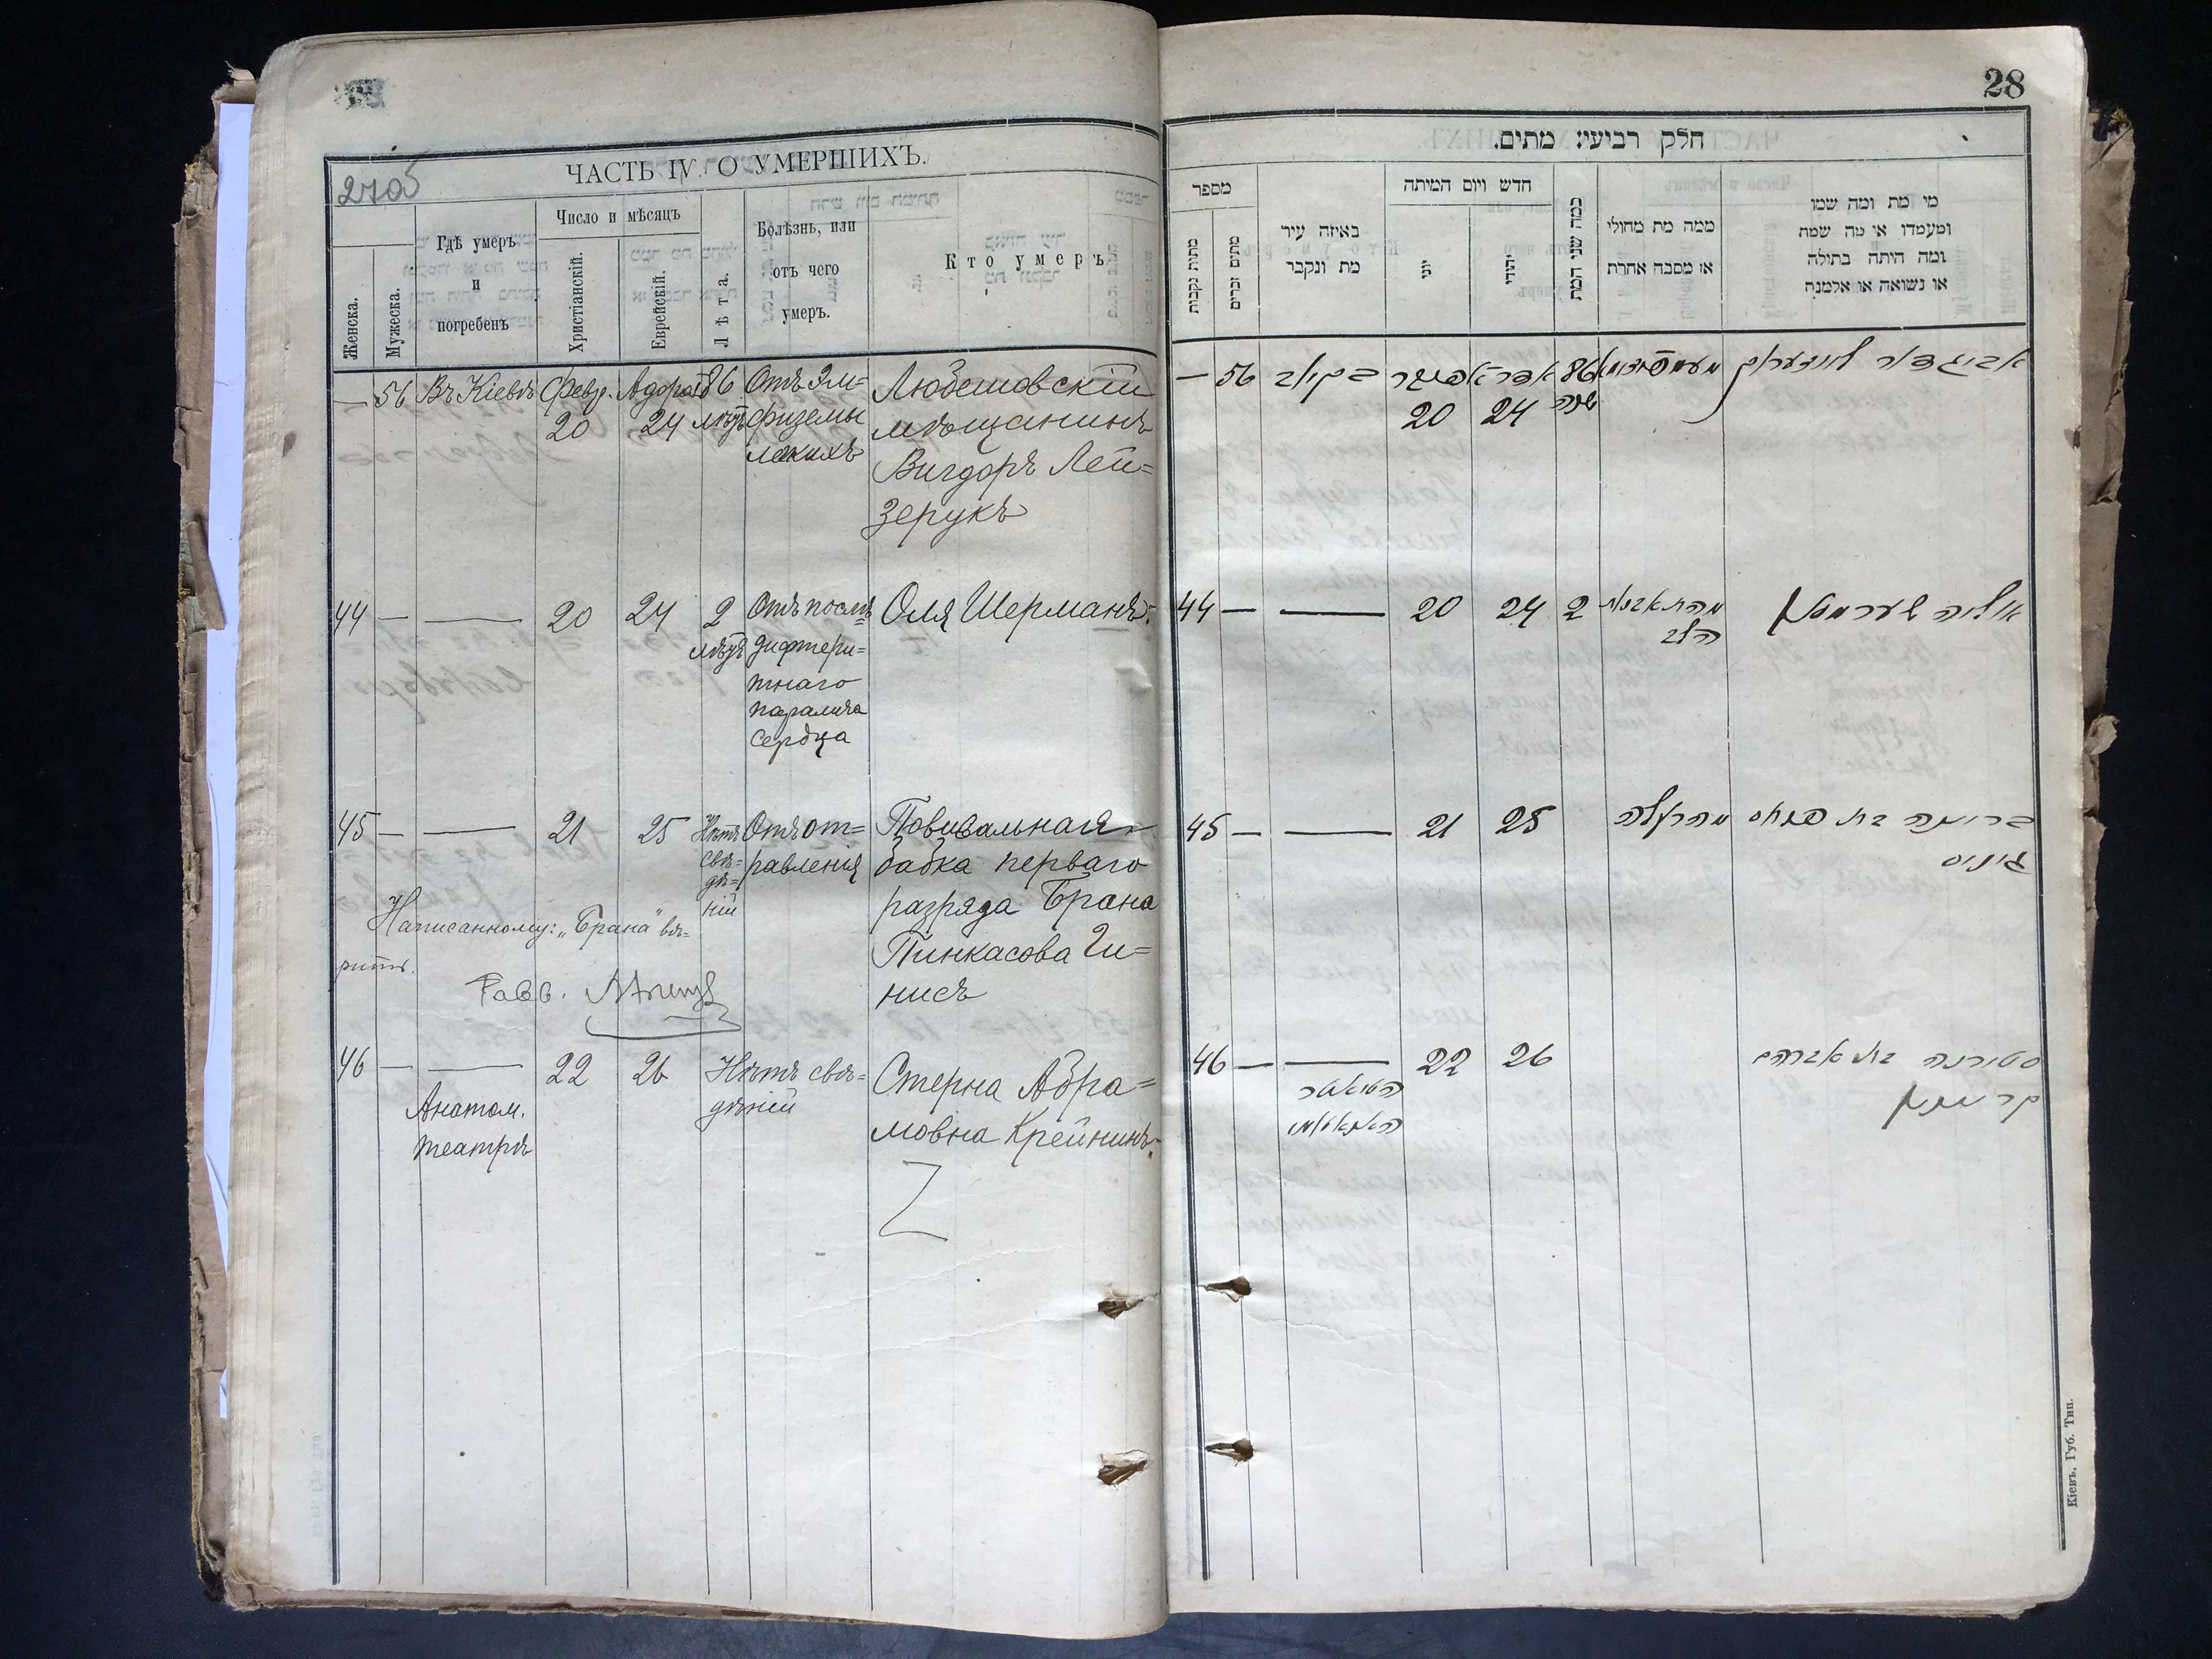 ЧАСТЬ IV. О УМЕРШИХЪ.
2705
Женска.
Мужеска.
Гдѣ умеръ
и
погребенъ
Число и мѣсяцъ
Христіанскій.
Еврейскій.
Лѣта.
Болѣзнь, или
отъ чего
умеръ.
Кто умеръ
— 56 Въ Кіевѣ Февр. Адора 86 Отъ эм=
20 24 лѣтъ физемы
легкихъ
Любешовскій
мѣщанинъ
Вигдоръ Лей=
зерукъ
44 — — 20 24 2 Отъ послѣ=
лѣтъ дифтери=
тнаго
паралича
сердца
Оля Шерманъ.
45 — — 21 25 Нѣтъ
свѣ=
дѣ=
ній
Отъ от=
равленія
Повивальная
бабка перваго
разряда Брана
Пинкасова Ги=
нисъ
Написанному: „Брана" вѣ=
рить.
Равв.
46 — — 22 26 Нѣтъ свѣ=
дѣній
Анатом.
театръ
Стерна Абра=
мовна Крейнинъ.
28
חלק רביעי: מתים.
מספר
מתות נקבות
מתים זכרים
באיזה עיר
מת ונקבר
חדש ויום המיתה
יוני
יהודי
כמה שני המת
ממה מת מחולי
או מסבה אחרת
מי מת ומה שמו
ומעמדו או מה שמת
ומה היתה בתולה
או נשואה או אלמנה
— 56 בקיוב פעוואר אדר א 86
20 24 שנה
אביגדור לייזערוק
44 — — 20 24 2
הלב
אוליה שערמאן
45 — — 21 25 מהרעלה
בריינה בת פנחס
גיניס
46 — — 22 26
סטירנה בת אברהם
קריינין
Кіевъ, Губ. Тип.